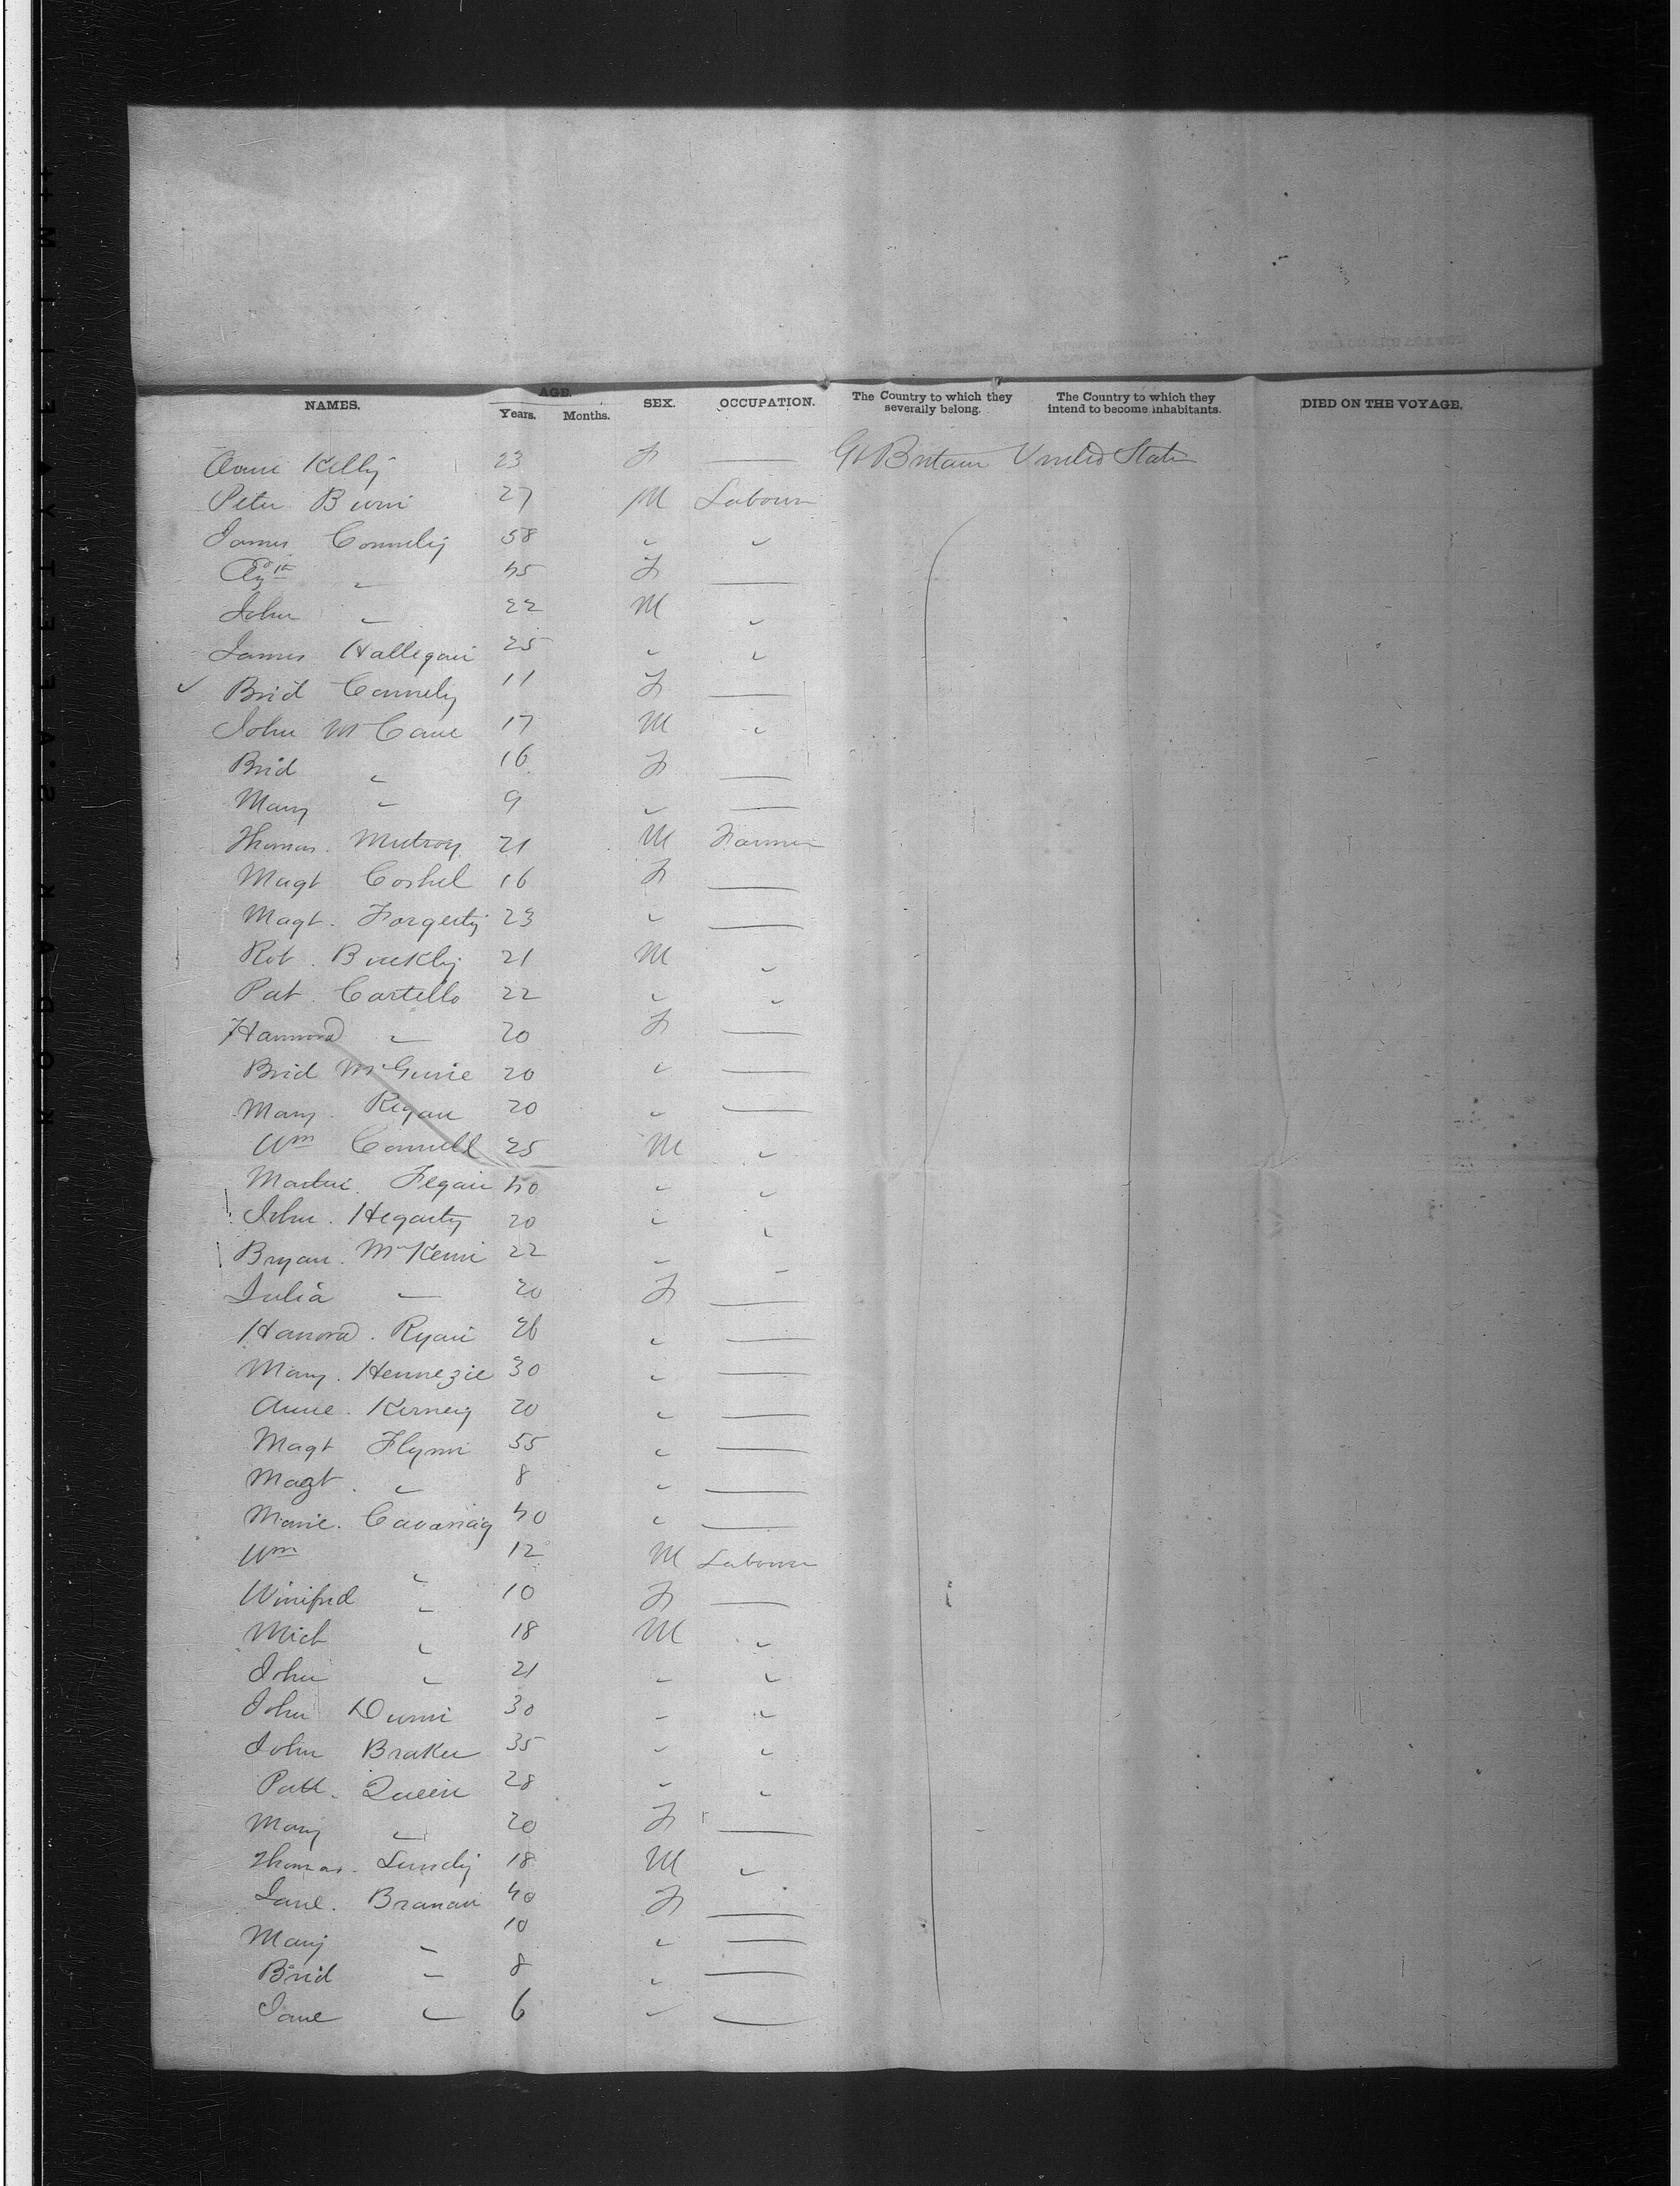 AGE.
NAMES. Years. Months. SEX. OCCUPATION. The Country to which they severally belong. The Country to which they intend to become inhabitants. DIED ON THE VOYAGE.
Anne Kelly 23 F — Gt Britain United States
Peter Burns 27 M Labourer
James Connely 58 " "
45 F —
John " 22 M "
James Hallegan 25 " "
✓ Brid Connely 11 F —
John McCane 17 M "
Brid " 16 F —
Mary " 9 " —
Thomas. Mulroy 21 M Farmer
Magt Coshel 16 F —
Magt. Forgerty 23 " —
Rob. Buckley 21 M "
Pat. Costello 22 " "
Hannora " 20 F —
Brid McGuire 20 " —
Mary. Regan 20 " —
Wm Connell 25 M "
Martin. Fegan 40 " "
John. Hegarty 20 " "
Bryan. McKenn 22 " "
Julia " 20 F —
Hanora. Ryan 26 " —
Mary. Hennezie 30 " —
Anne. Kerney 20 " —
Magt Flynn 55 " —
Magt. " 8 " —
Marie. Cavanag 40 " —
Wm " 12 M Labourer
Winifred " 10 F —
Mich " 18 M "
John " 21 " "
John Dunn 30 " "
John Braken 35 " "
Patt. Queen 28 " "
Mary " 20 F —
Thomas. Lundy 18 M "
Jane. Branan 40 F —
Mary " 10 " —
Brid " 8 " —
Jane " 6 " —